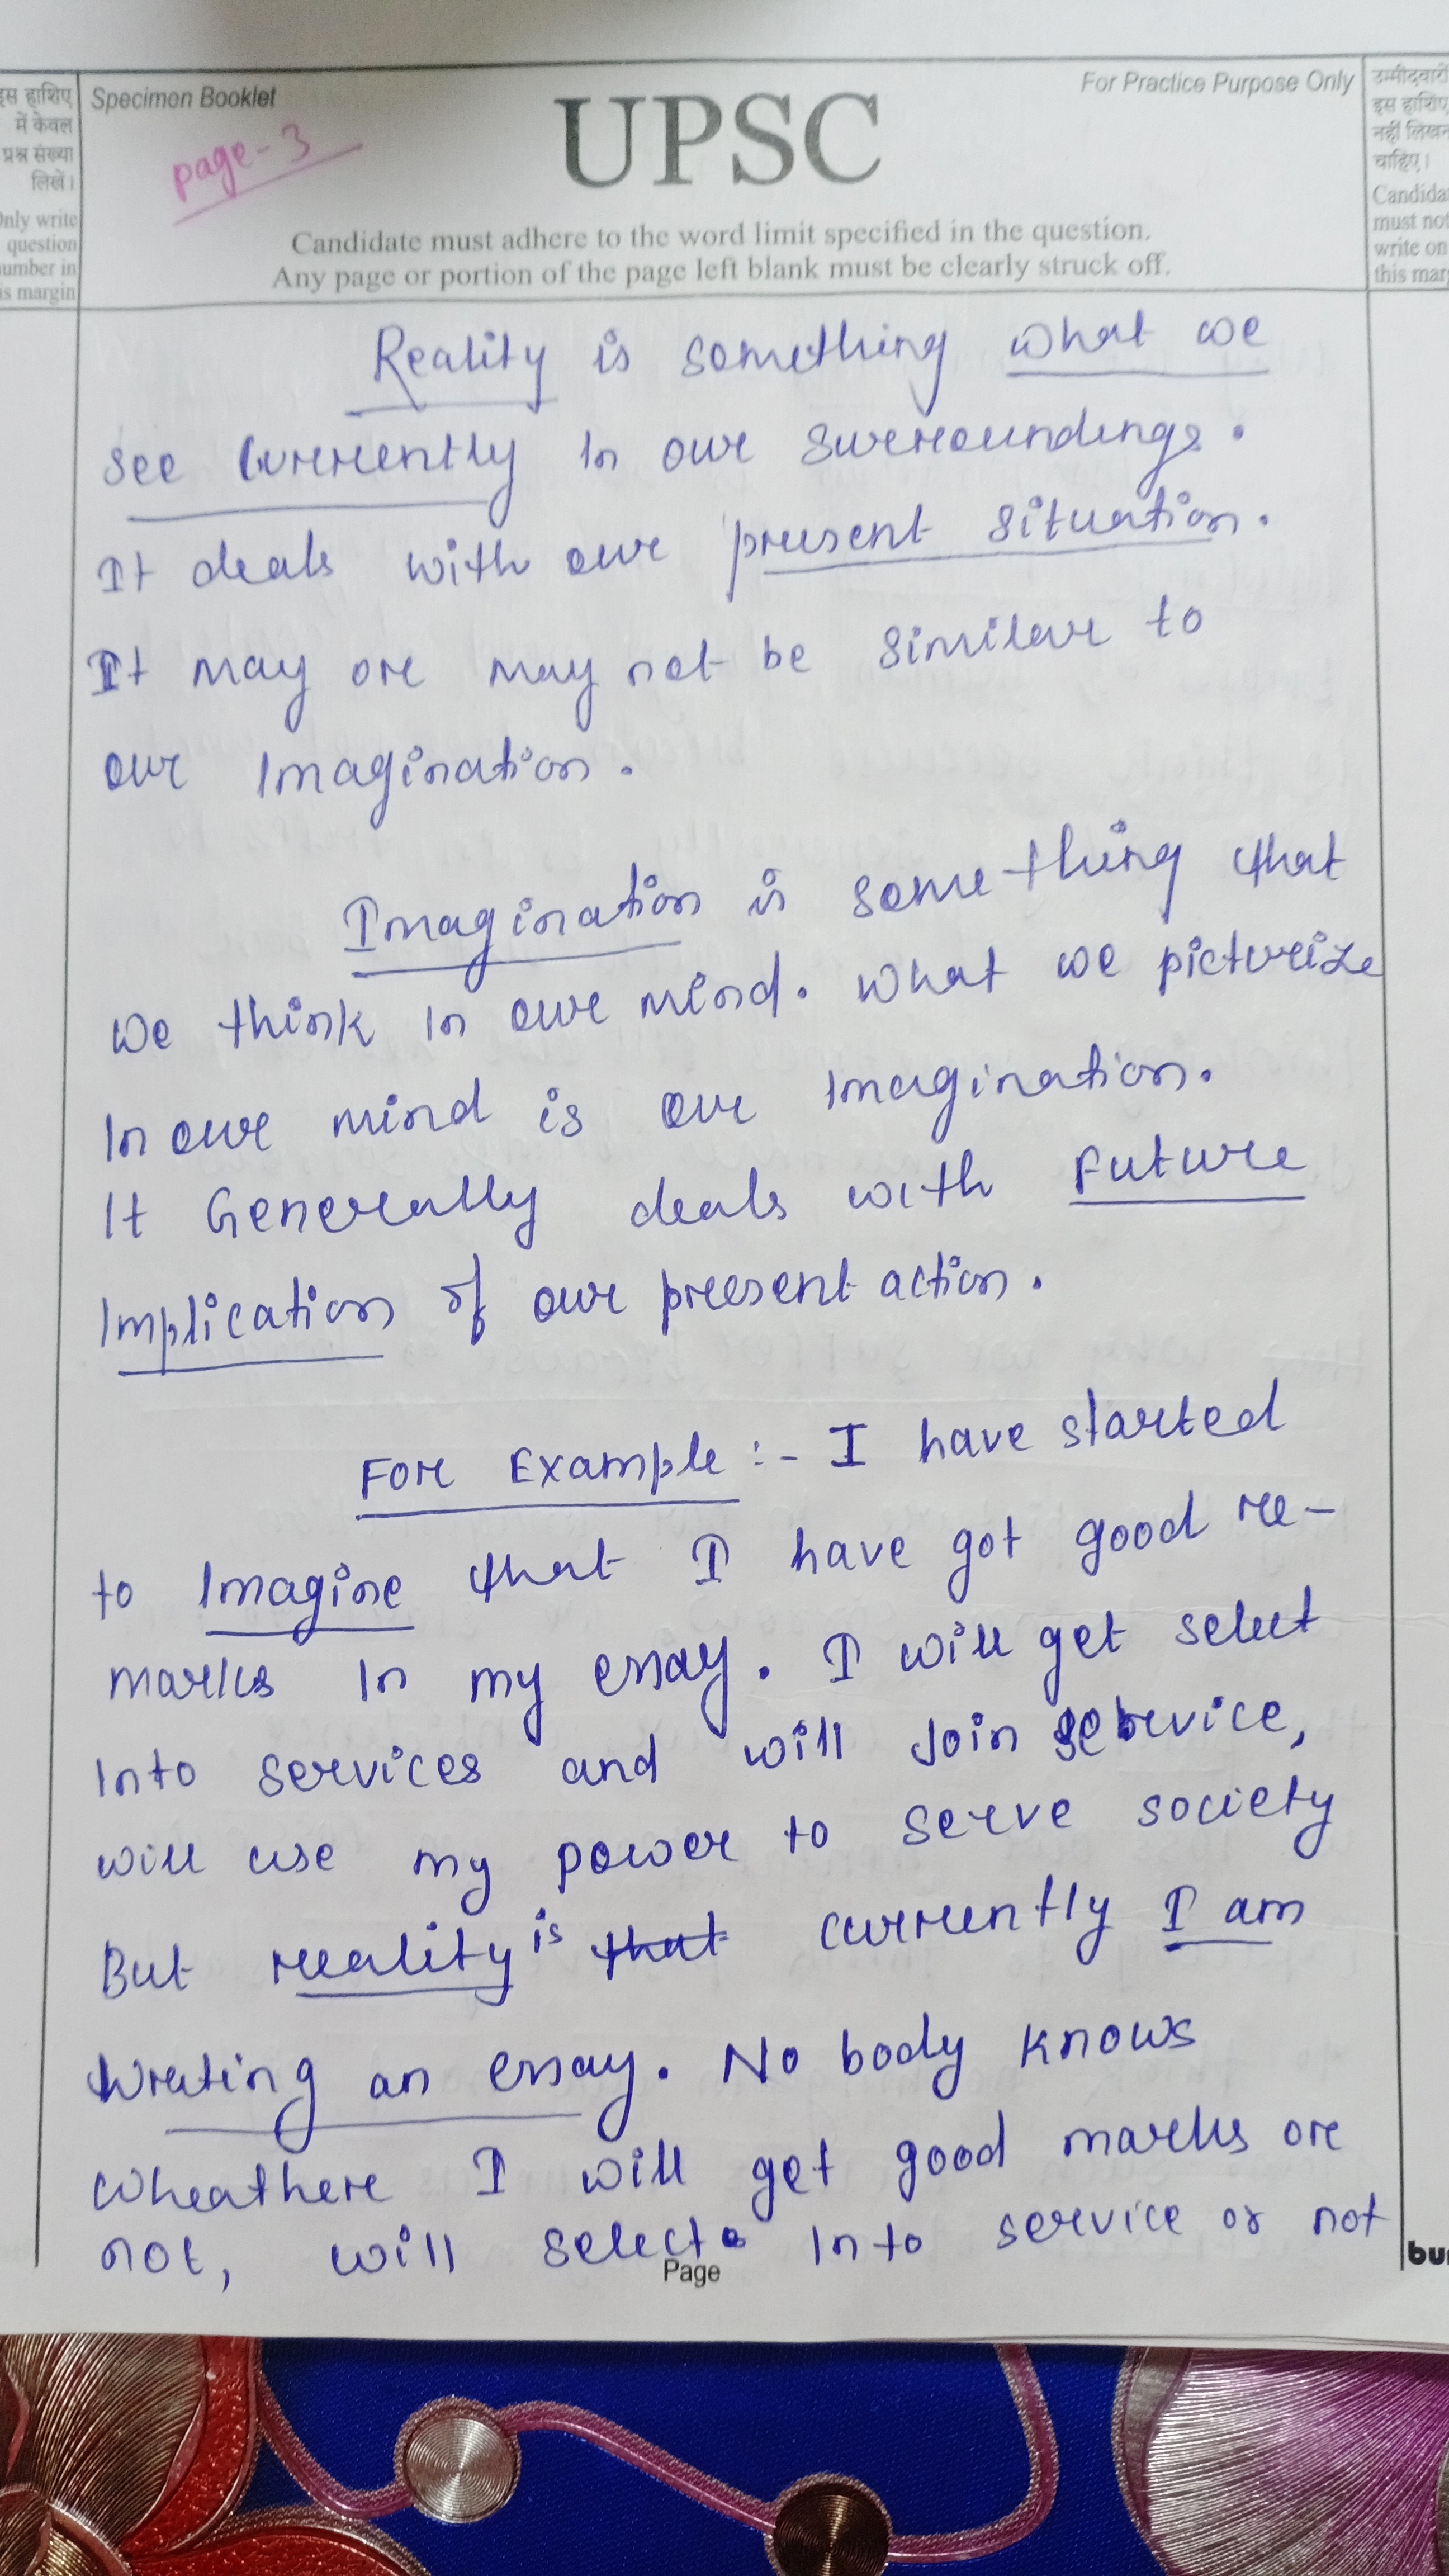 इस हाशिए
में केवल
प्रश्न संख्या
लिखें।
Only write
question
number in
is margin
Specimen Booklet
page-3
UPSC
For Practice Purpose Only
Candidate must adhere to the word limit specified in the question.
Any page or portion of the page left blank must be clearly struck off.
उम्मीदवारों
इस हाशिए
नहीं लिखन
चाहिए।
Candida
must not
write on
this mar
Reality is something what we
see currently In our surroundings.
It deals with our present situation.
It may or may not be similar to
our Imagination.
Imagination is something that
we think In our mind. What we picturize
In our mind is our Imagination.
It Generally deals with Future
Implication of our present action.
For Example :- I have started
to Imagine that I have got good re-
marks In my essay. I will get select
Into services and will Join service,
will use my power to serve society
But reality is that currently I am
Writing an essay. No body knows
wheather I will get good marks or
not, will select Into service or not
Page
bu